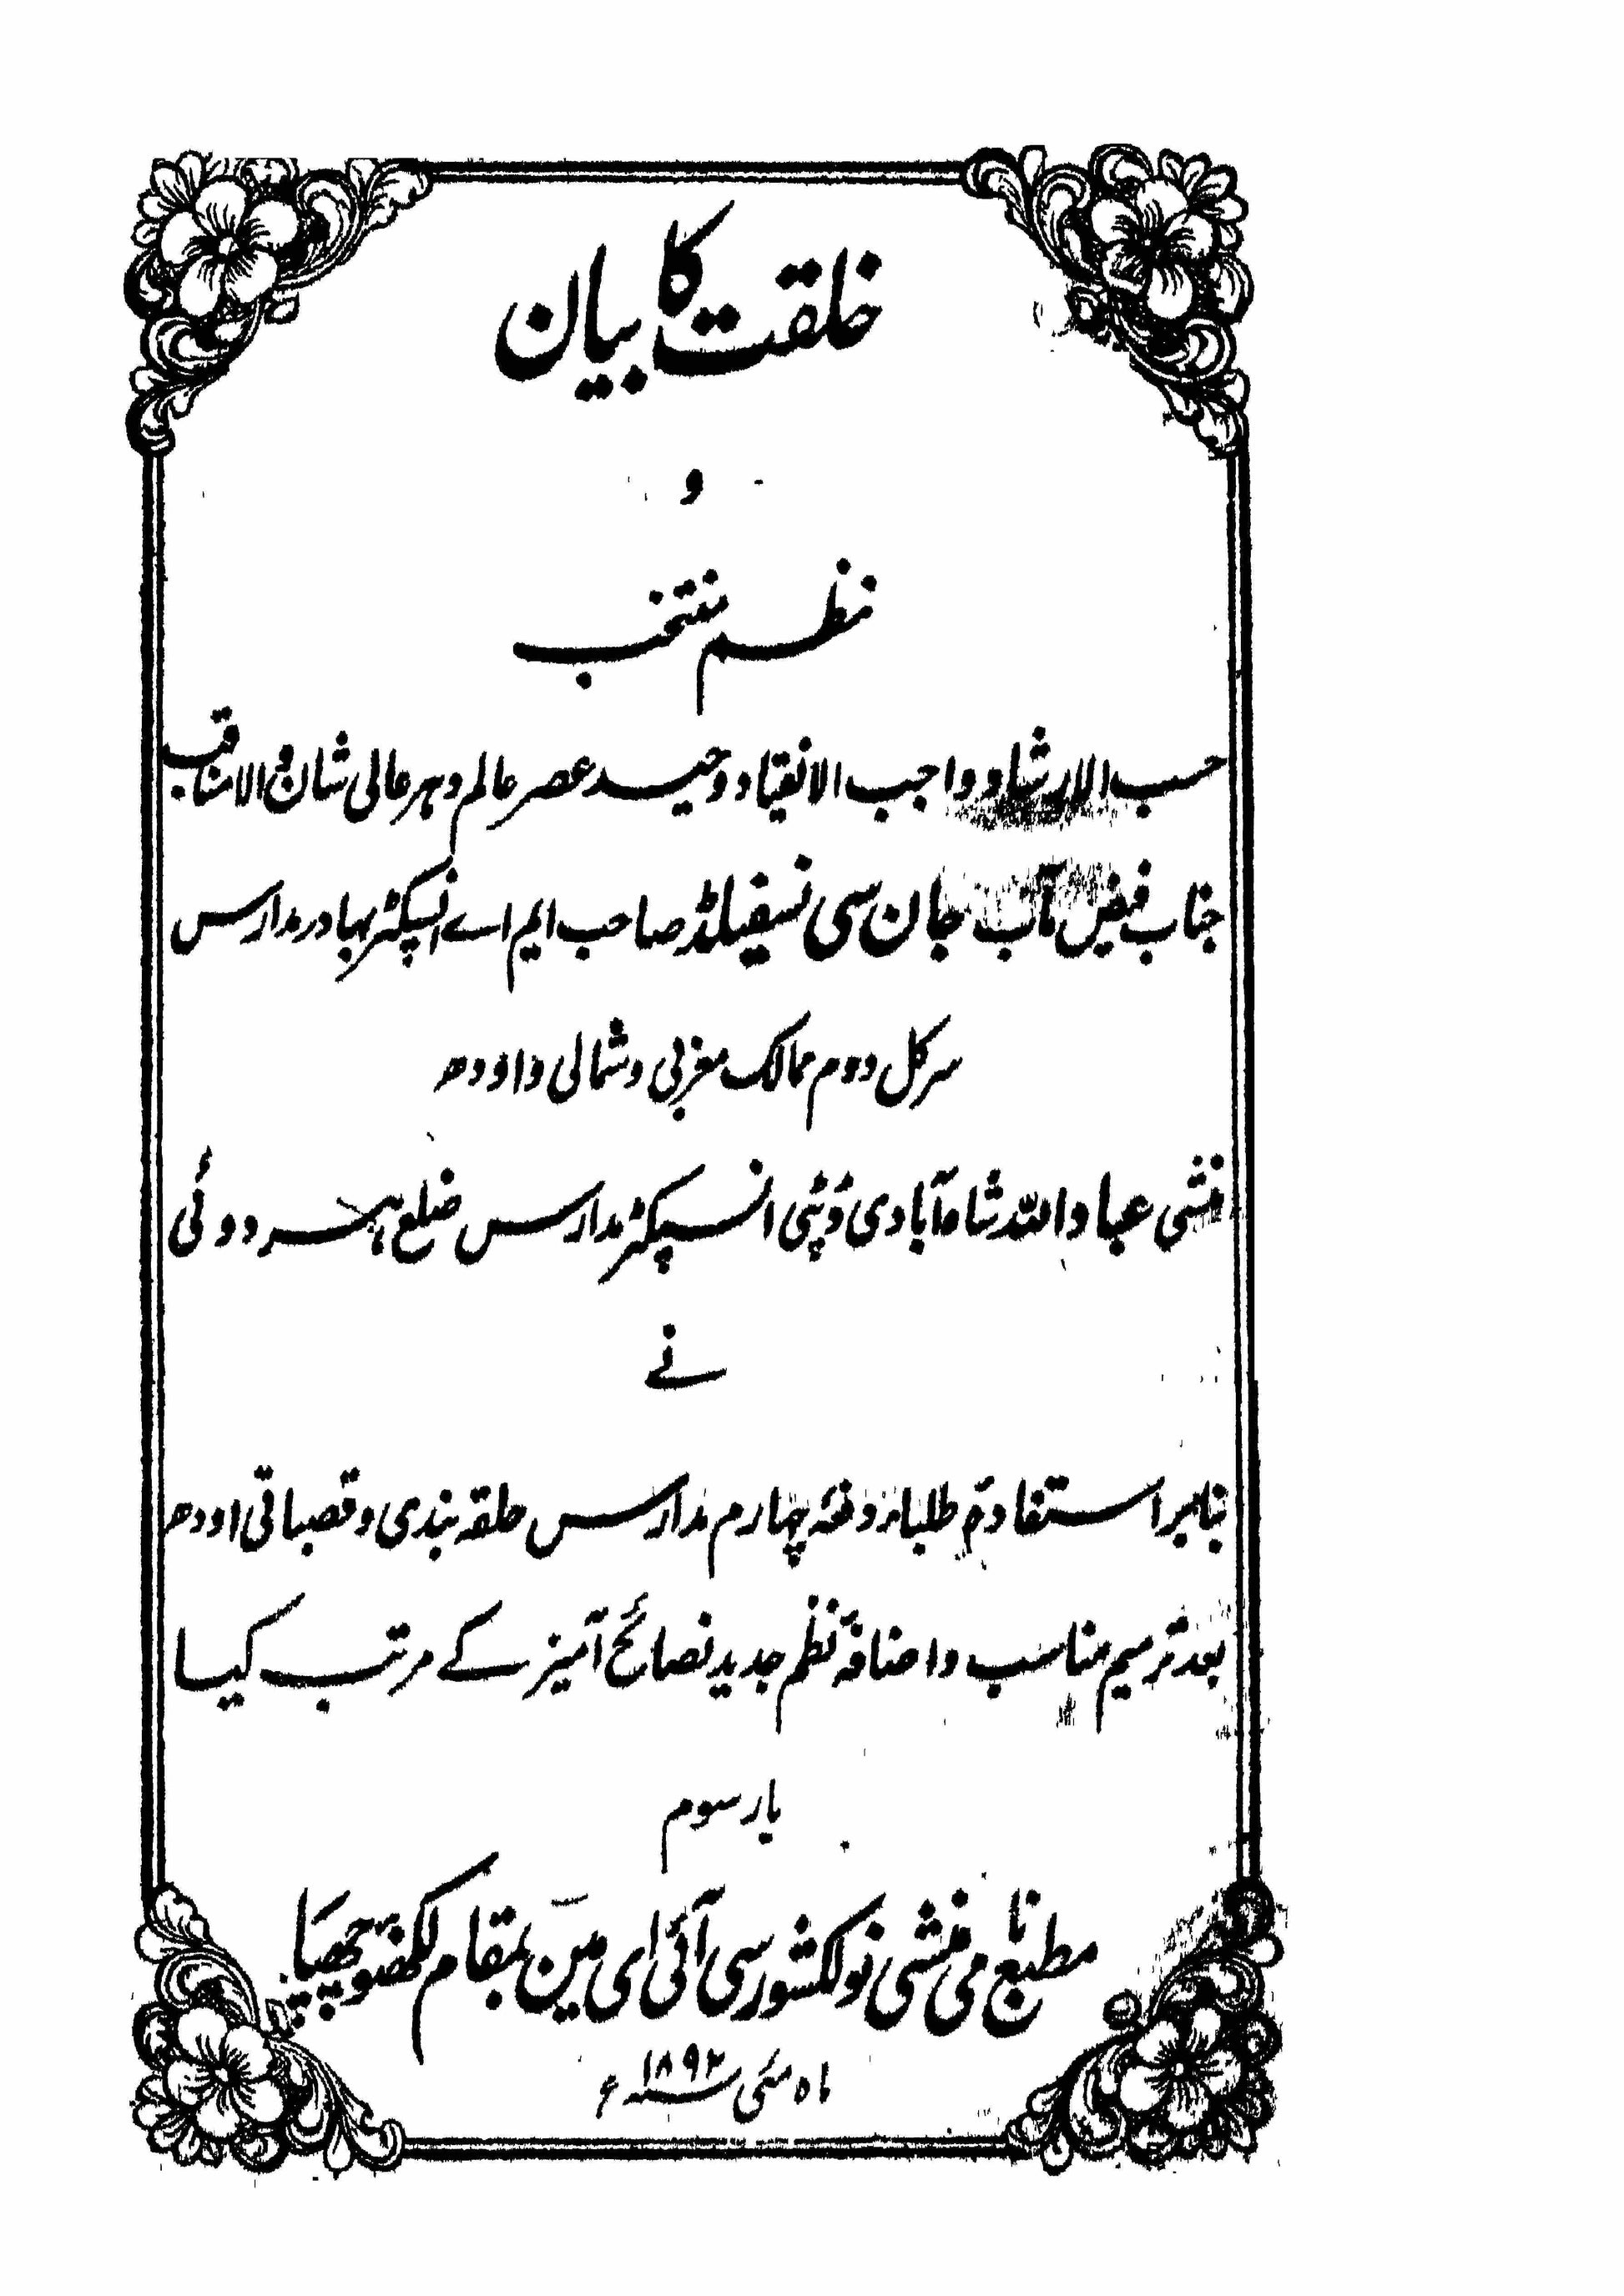 خلقت کا بیان
و
نظم منتخب
حسب الارشاد واجب الانقیاد وحید عصر عالم دہر عالی شان والا مناقب
جناب فیض مآب جان سی نسیفیلڈ صاحب ایم اے انسپکٹر بہادر مدارس
سرکل دوم ممالک مغربی وشمالی واودھ
منشی عباد اللہ شاہ آبادی ڈپٹی انسپکٹر مدارس ضلع ہردوئی
نے
بنابر استفادۂ طلباء دفعۂ چہارم مدارس حلقہ بندی و قصباتی اودھ
بعد ترمیم مناسب و اضافۂ نظم جدید نصائح آمیز کے مرتب کیا
بار سوم
مطبع نامی منشی نولکشور سی آئی ای مین بمقام لکھنؤ چھپا
ماہ مئی سنہ ۱۸۹۲ء